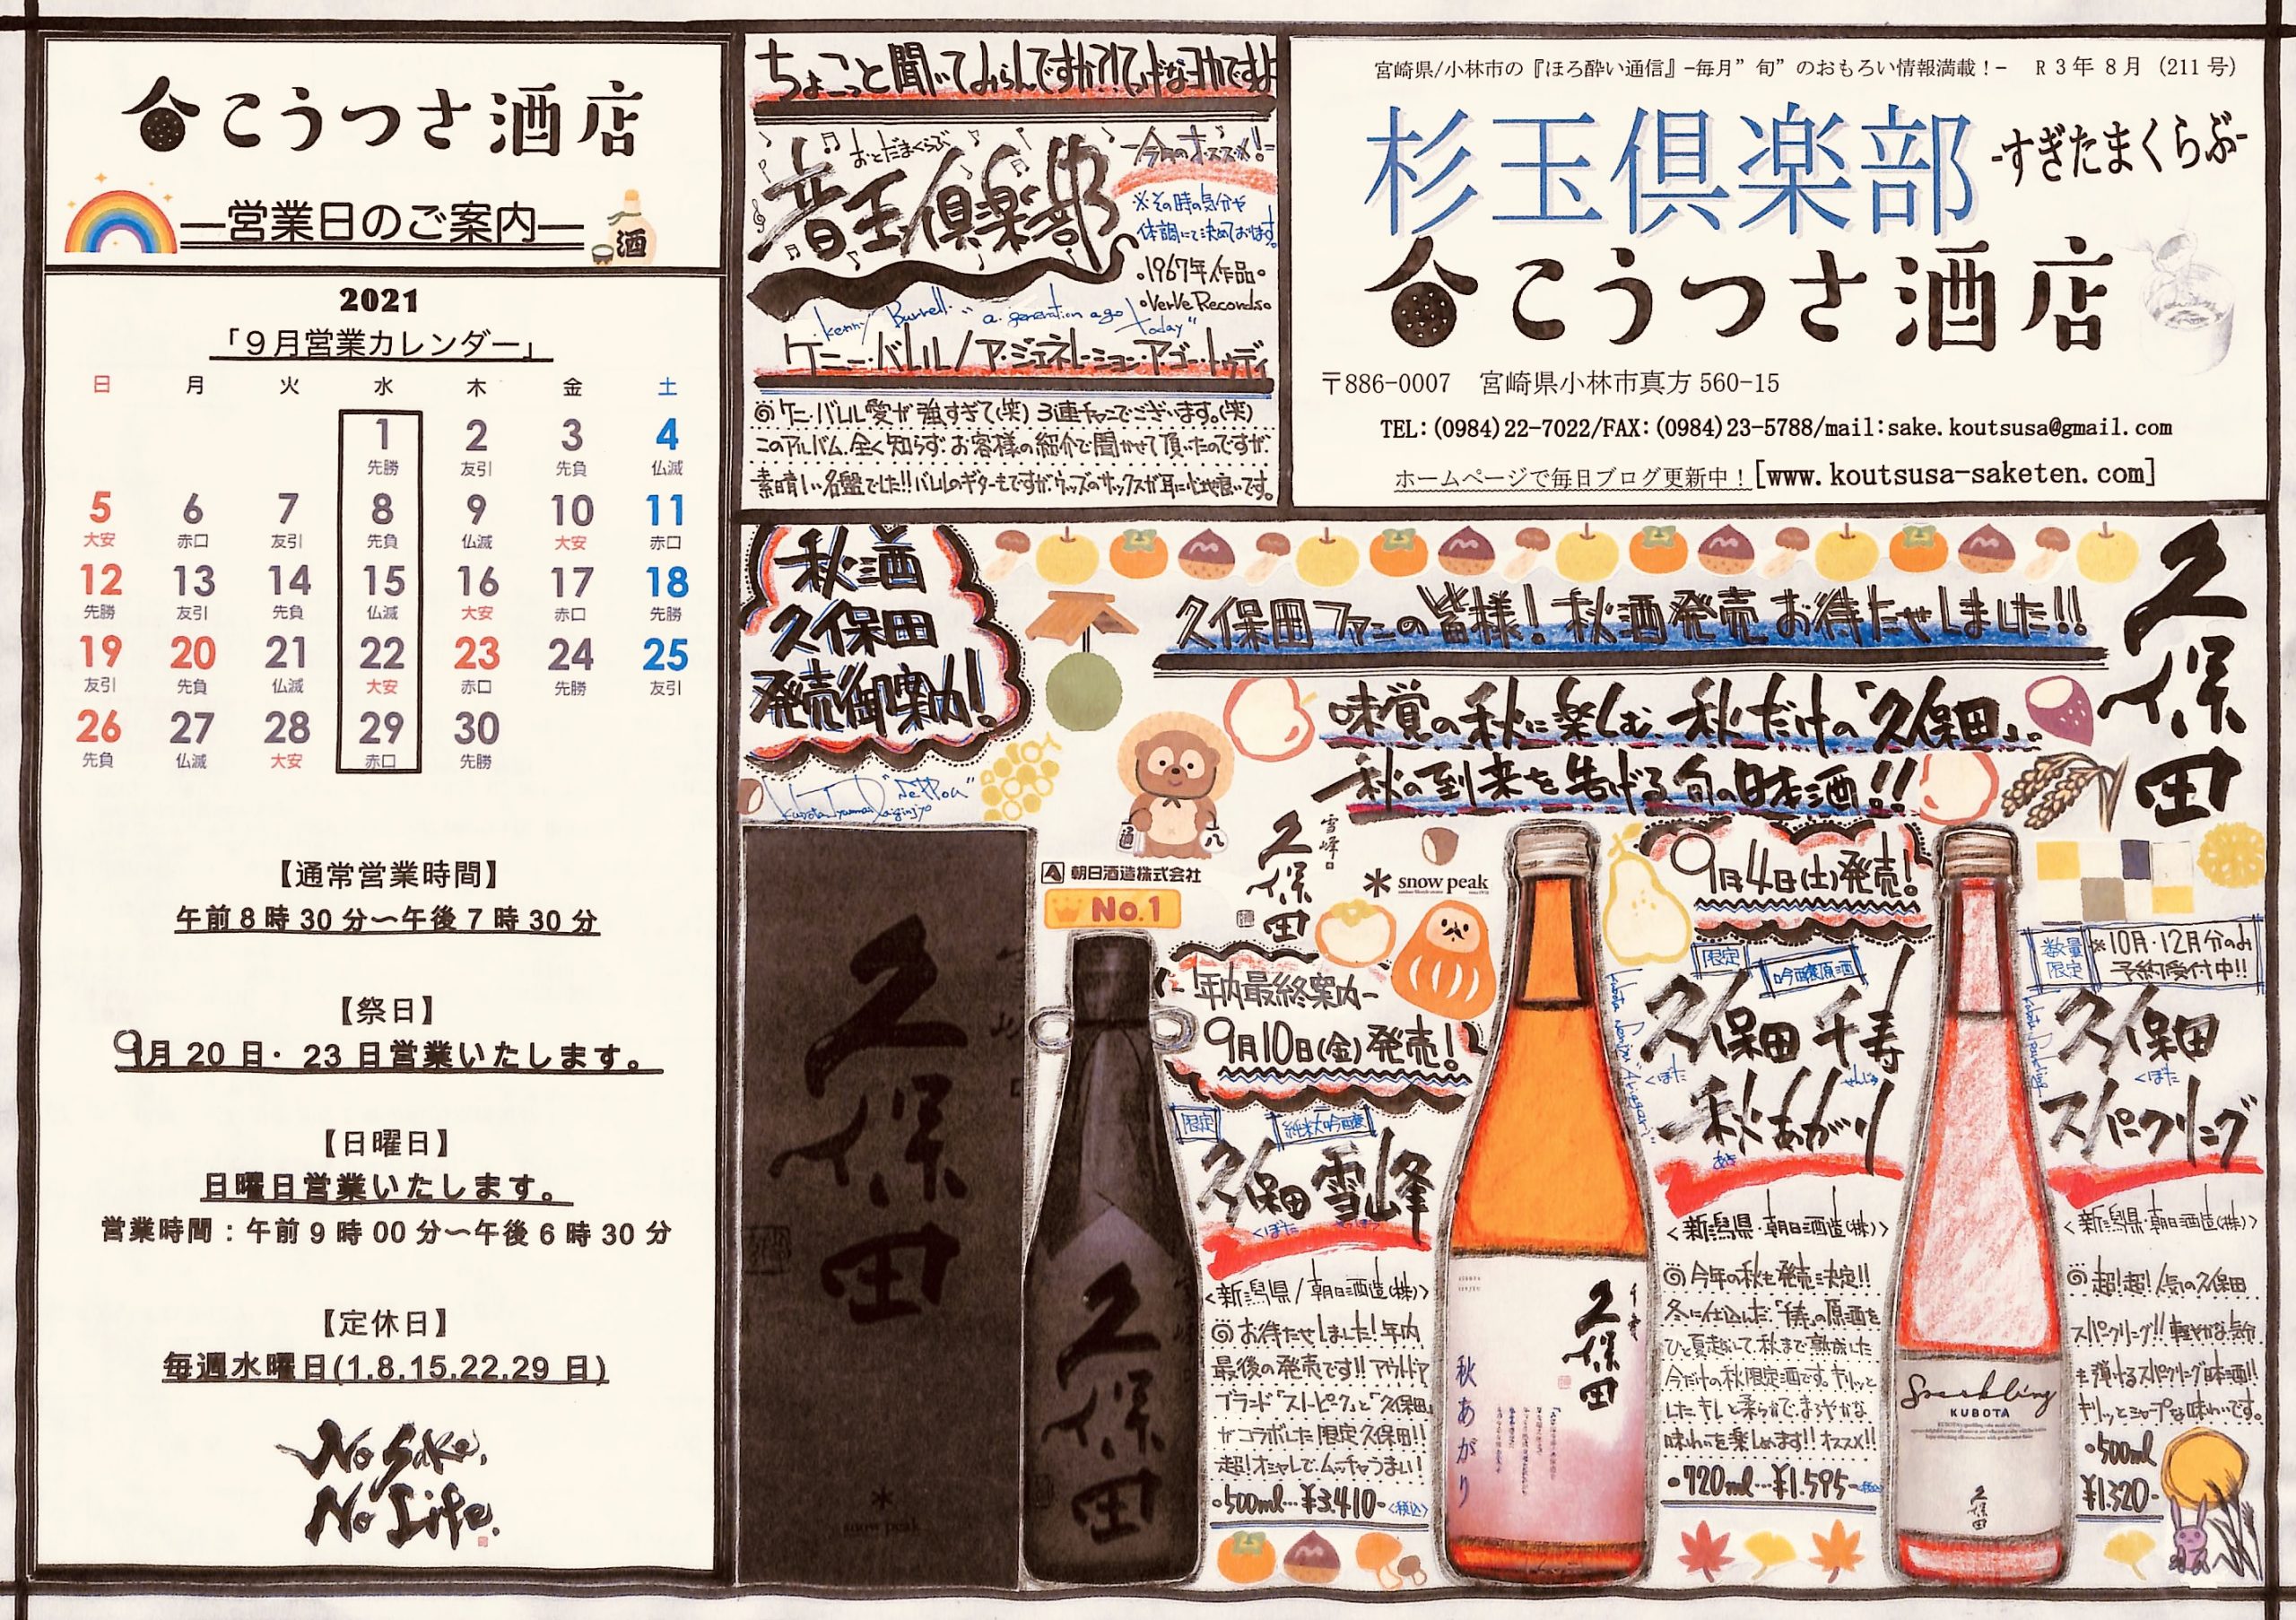 こうつさ酒店
―営業日のご案内―
酒
2021
「９月営業カレンダー」
日 月 火 水 木 金 土
1 2 3 4
先勝 友引 先負 仏滅
5 6 7 8 9 10 11
大安 赤口 友引 先負 仏滅 大安 赤口
12 13 14 15 16 17 18
先勝 友引 先負 仏滅 大安 赤口 先勝
19 20 21 22 23 24 25
友引 先負 仏滅 大安 赤口 先勝 友引
26 27 28 29 30
先負 仏滅 大安 赤口 先勝
【通常営業時間】
午前8時30分～午後7時30分
【祭日】
9月20日・23日営業いたします。
【日曜日】
日曜日営業いたします。
営業時間：午前9時00分～午後6時30分
【定休日】
毎週水曜日(1.8.15.22.29日)
No Sake,
No Life.
ちょこっと聞いてみらんですか?!てげなヨカですよ
おとだまくらぶ
音玉倶楽部
-今月のオススメ!!-
※その時の気分や
体調にて決めております。
・1967年作品・
・Verve Records・
Kenny Burrell "a generation ago today"
ケニー・バレル/ア・ジェネレーション・アゴー・トゥディ
◎ケニー・バレル愛が強すぎて(笑)3連チャンでございます。(笑)
このアルバム、全く知らず、お客様の紹介で聞かせて頂いたのですが、
素晴しい名盤でした!!バレルのギターもですが、ウッズのサックスが耳に心地良いです。
宮崎県/小林市の『ほろ酔い通信』-毎月”旬”のおもろい情報満載！- R３年８月（211号）
杉玉倶楽部 -すぎたまくらぶ-
こうつさ酒店
〒886-0007 宮崎県小林市真方560-15
TEL:(0984)22-7022/FAX:(0984)23-5788/mail:sake.koutsusa@gmail.com
ホームページで毎日ブログ更新中！[www.koutsusa-saketen.com]
秋酒
久保田
発売御案内!
久保田ファンの皆様!秋酒発売お待たせしました!!
味覚の秋に楽しむ、秋だけの「久保田」。
秋の到来を告げる旬の日本酒!!
久保田
通
八
朝日酒造株式会社
No.1
久保田
雪峰
snow peak
-年内最終案内-
9月10日(金)発売!
限定
純米大吟醸
久保田 雪峰
くぼた
<新潟県/朝日酒造(株)>
◎お待たせしました!年内
最後の発売です!!アウトドア
ブランド「スノーピーク」と「久保田」
がコラボした限定久保田!!
超!オシャレで、ムッチャうまい!
・500ml…¥3.410-<税込>
久保田
snow peak
久保田
9月4日(土)発売!
限定
吟醸原酒
久保田 千寿
くぼた せんじゅ
秋あがり
あき
<新潟県・朝日酒造(株)>
◎今年の秋も発売決定!!
冬に仕込んだ「千寿」の原酒を
ひと夏越して、秋まで熟成した
今だけの秋限定酒です。キリッと
したキレと柔らかで、まろやかな
味わいを楽しめます!!オススメ!!
・720ml…¥1.595-<税込>
千寿
久保田
秋あがり
数量
限定
※10月・12月分のみ
予約受付中!!
久保田
くぼた
スパークリング
<新潟県・朝日酒造(株)>
◎超!超!人気の久保田
スパークリング!!軽やかな気分
も弾けるスパークリング日本酒!!
キリッとシャープな味わいです。
・500ml
¥1.320-
Sparkling
KUBOTA
久保田